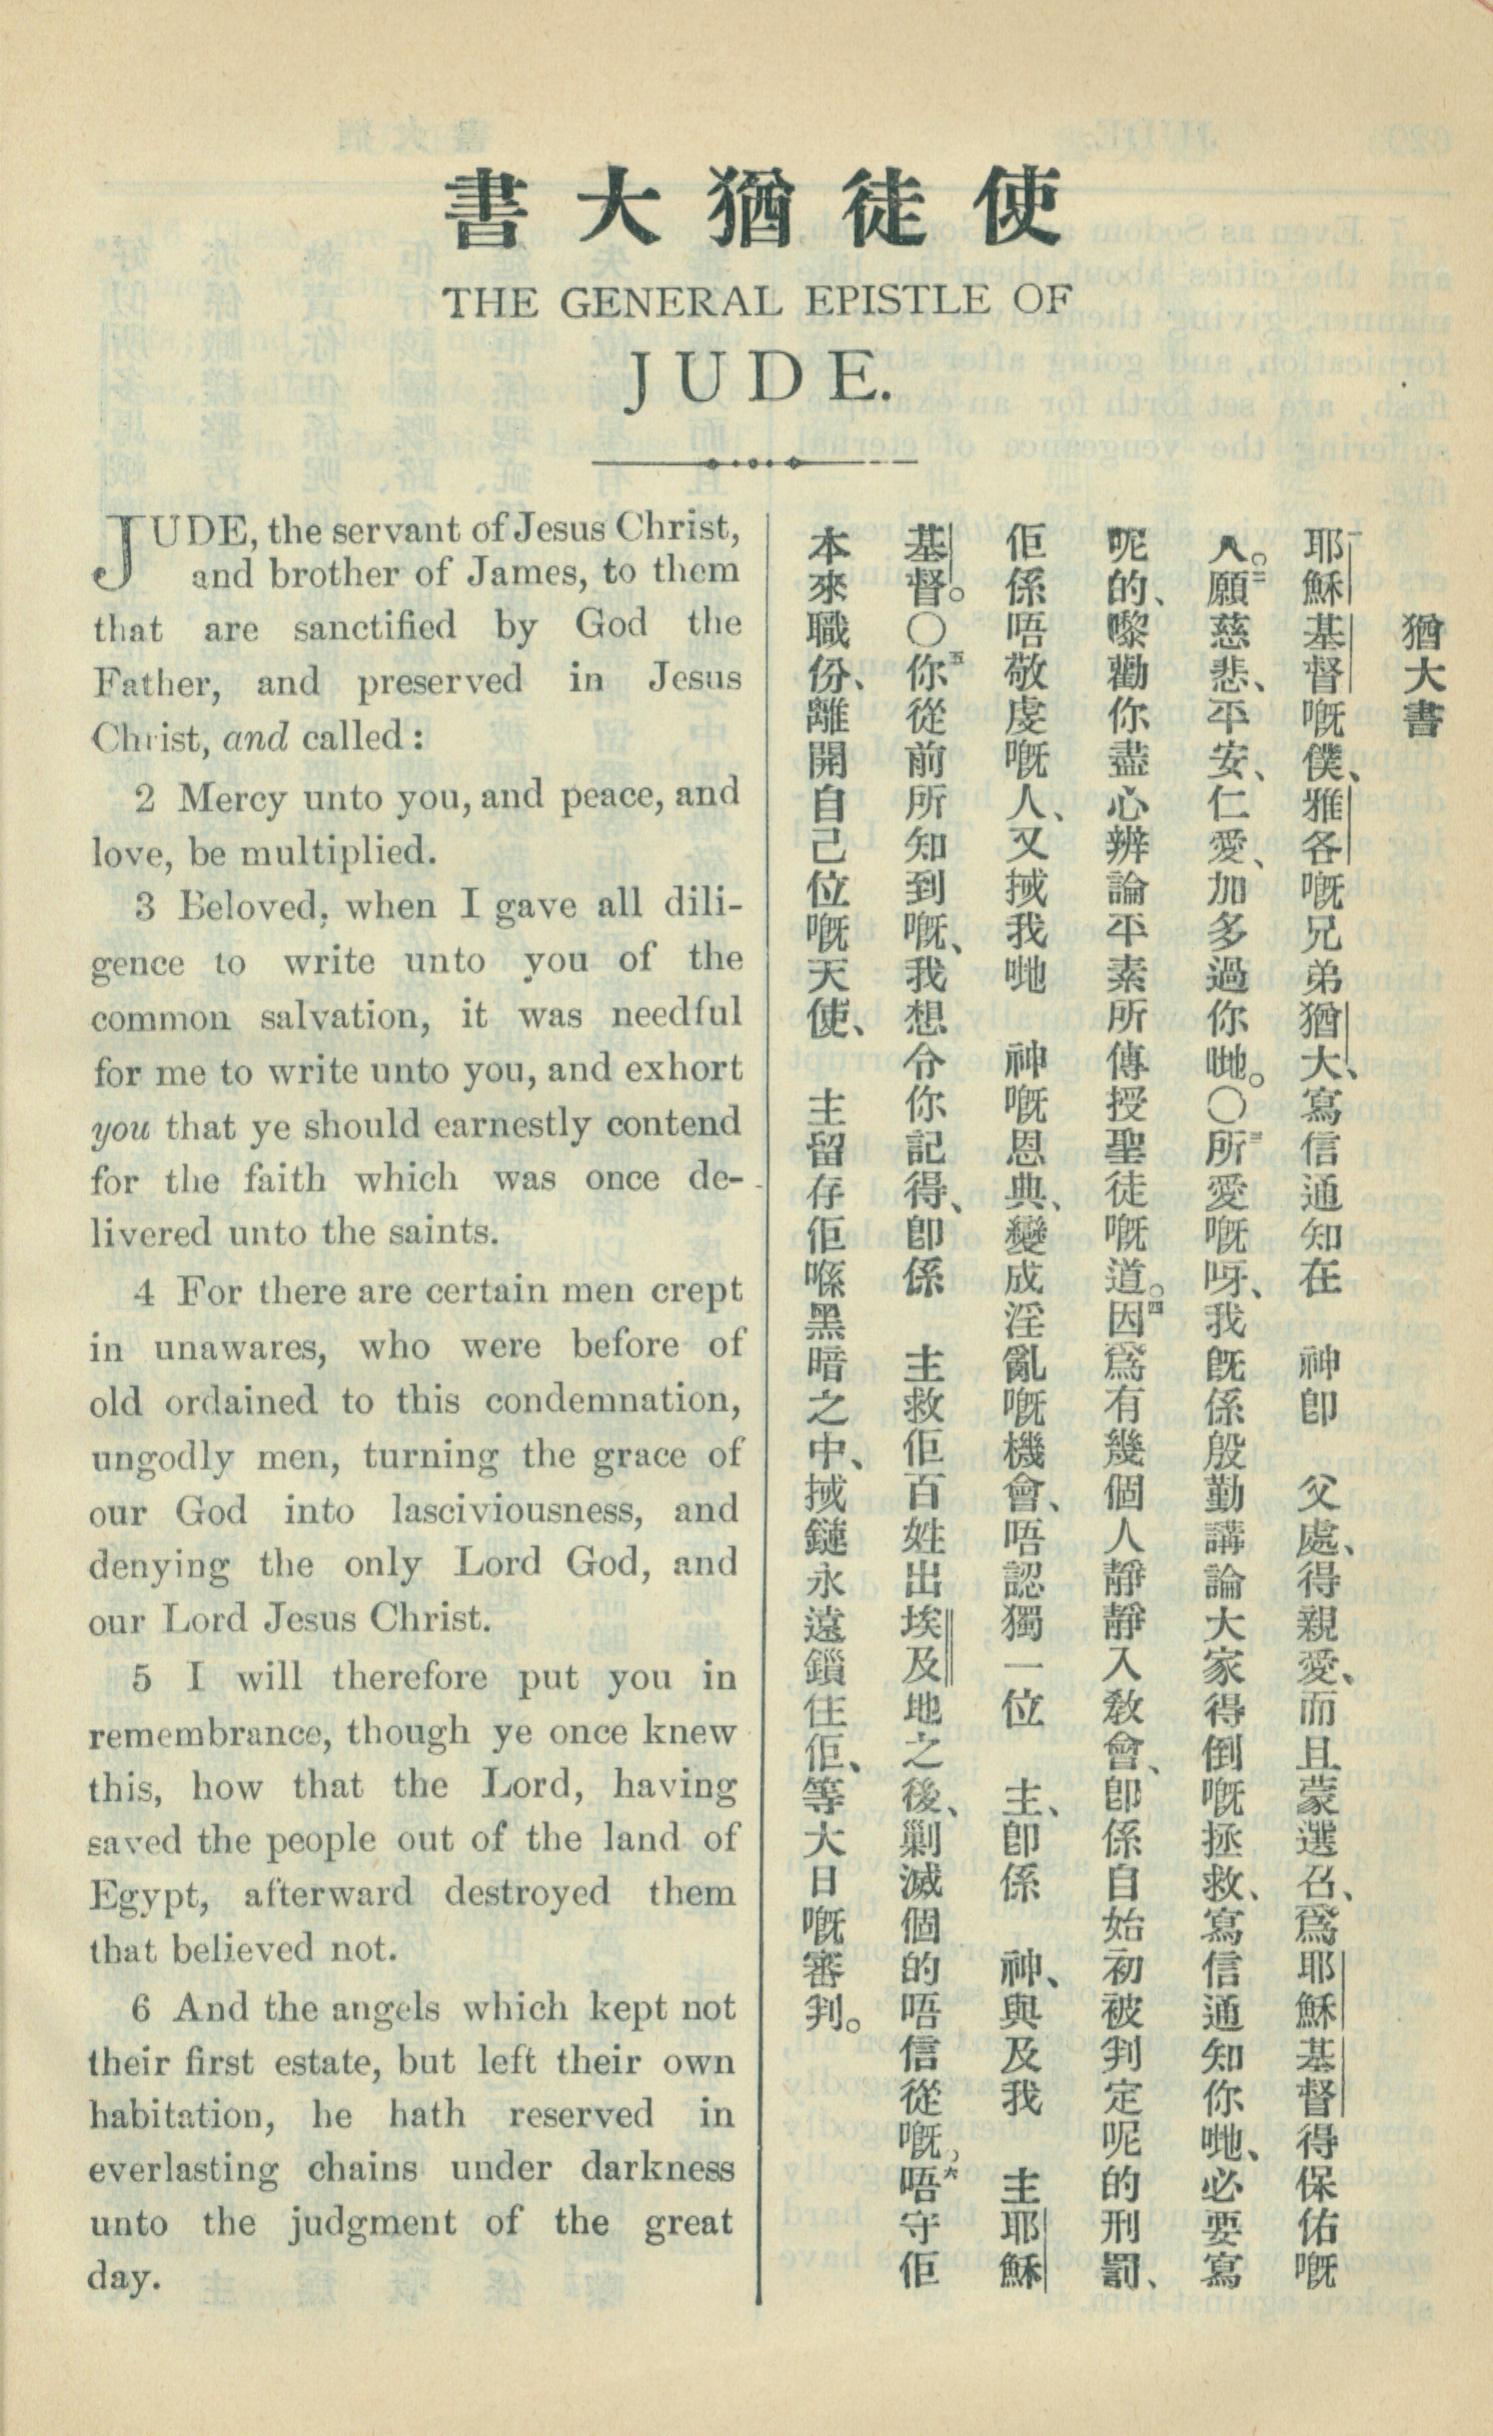 使徒猶大書
THE GENERAL EPISTLE OF
JUDE.
JUDE, the servant of Jesus Christ,
and brother of James, to them
that are sanctified by God the
Father, and preserved in Jesus
Christ, and called:
2 Mercy unto you, and peace, and
love, be multiplied.
3 Beloved, when I gave all dili-
gence to write unto you of the
common salvation, it was needful
for me to write unto you, and exhort
you that ye should earnestly contend
for the faith which was once de-
livered unto the saints.
4 For there are certain men crept
in unawares, who were before of
old ordained to this condemnation,
ungodly men, turning the grace of
our God into lasciviousness, and
denying the only Lord God, and
our Lord Jesus Christ.
5 I will therefore put you in
remembrance, though ye once knew
this, how that the Lord, having
saved the people out of the land of
Egypt, afterward destroyed them
that believed not.
6 And the angels which kept not
their first estate, but left their own
habitation, he hath reserved in
everlasting chains under darkness
unto the judgment of the great
day.
猶大書
耶穌基督嘅僕、雅各嘅兄弟猶大、寫信通知在 神卽 父處、得親愛、而且蒙選召、爲耶穌基督得保佑嘅
人。二願慈悲、平安、仁愛、加多過你哋。〇三所愛嘅呀、我旣係殷勤講論大家得倒嘅拯救、寫信通知你哋、必要寫
呢的、嚟勸你盡心辨論平素所傳授聖徒嘅道。四因爲有幾個人靜靜入敎會、卽係自始初被判定呢的刑罰、
佢係唔敬虔嘅人、又搣我哋 神嘅恩典、變成淫亂嘅機會、唔認獨一位 主、卽係 神、與及我 主耶穌
基督。〇五你從前所知到嘅、我想令你記得、卽係 主救佢百姓出埃及地之後、剿滅個的唔信從嘅，六唔守佢
本來職份、離開自己位嘅天使、 主留存佢喺黑暗之中、搣鏈永遠鎖住佢、等大日嘅審判。